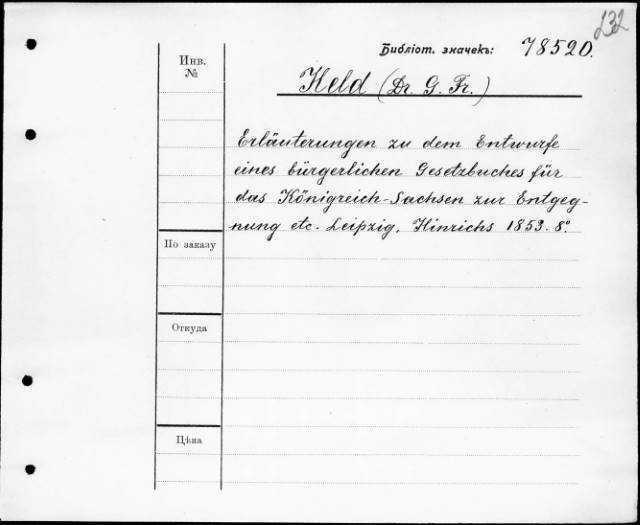 232
Библіот. значекъ: 78520.
Инв.
№
Held (Dr. G. Fr.)
Erläuterungen zu dem Entwurfe
eines bürgerlichen Gesetzbuches für
das Königreich-Sachsen zur Entgeg-
nung etc. Leipzig, Hinrichs 1853. 8°.
По заказу
Откуда
Цѣна